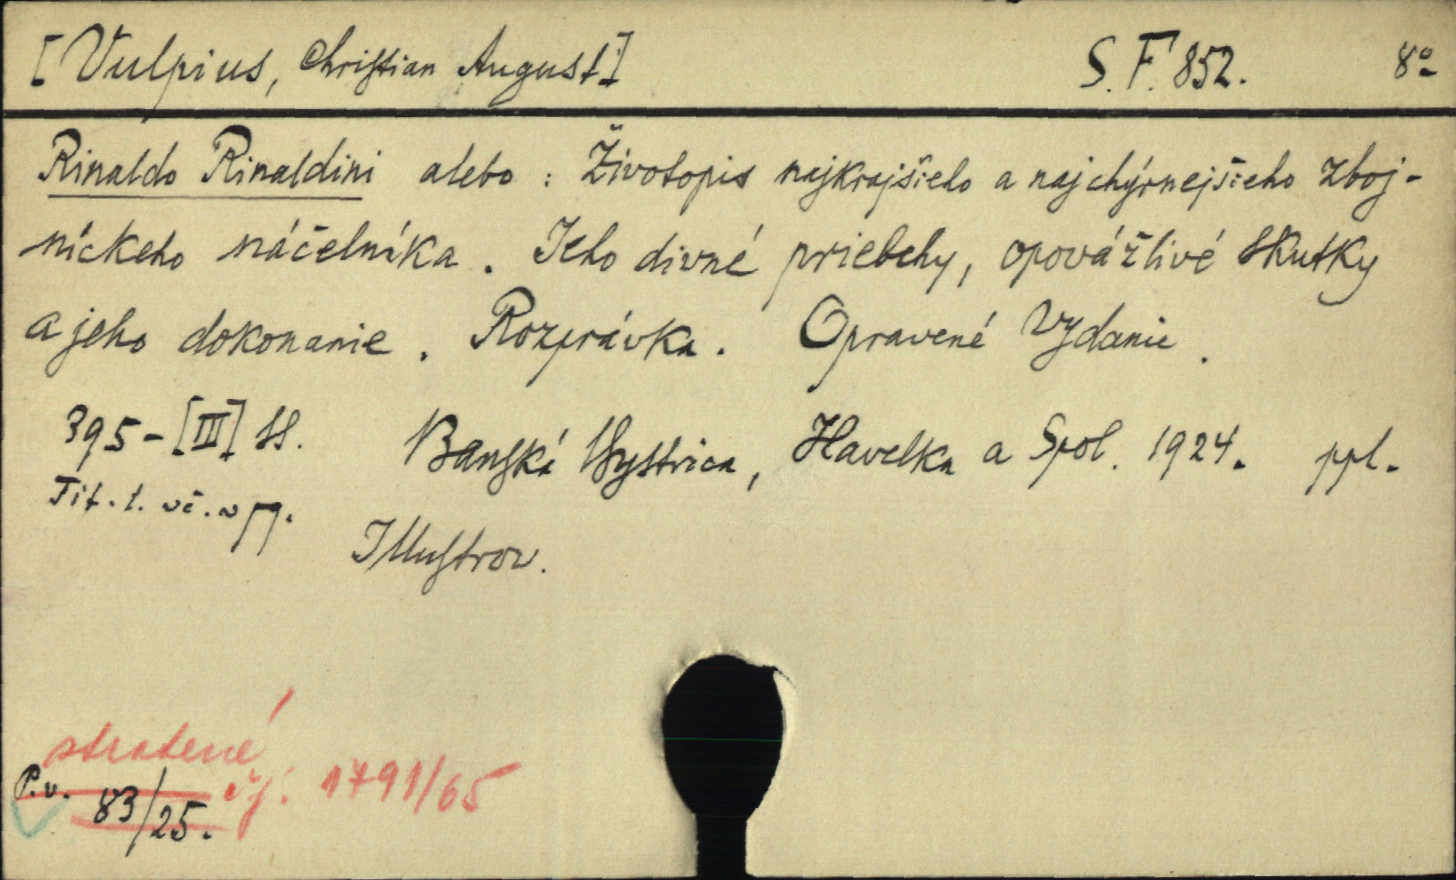 [Vulpius, Christian August] S. F. 852. 8°
Rinaldo Rinaldini alebo: Životopis najkrajšieho a najchýrnejšieho zboj-
níckeho náčelníka. Jeho divné priebehy, opovážlivé skutky
a jeho dokonanie. Rozprávka. Opravené vydanie.
395-[III] ss. Banská Bystrica, Havelka a Spol. 1924. ppl.
Tit. l. vč. v pag.
Illustrov.
stratené
P.v. 83/25. čj. 1791/65